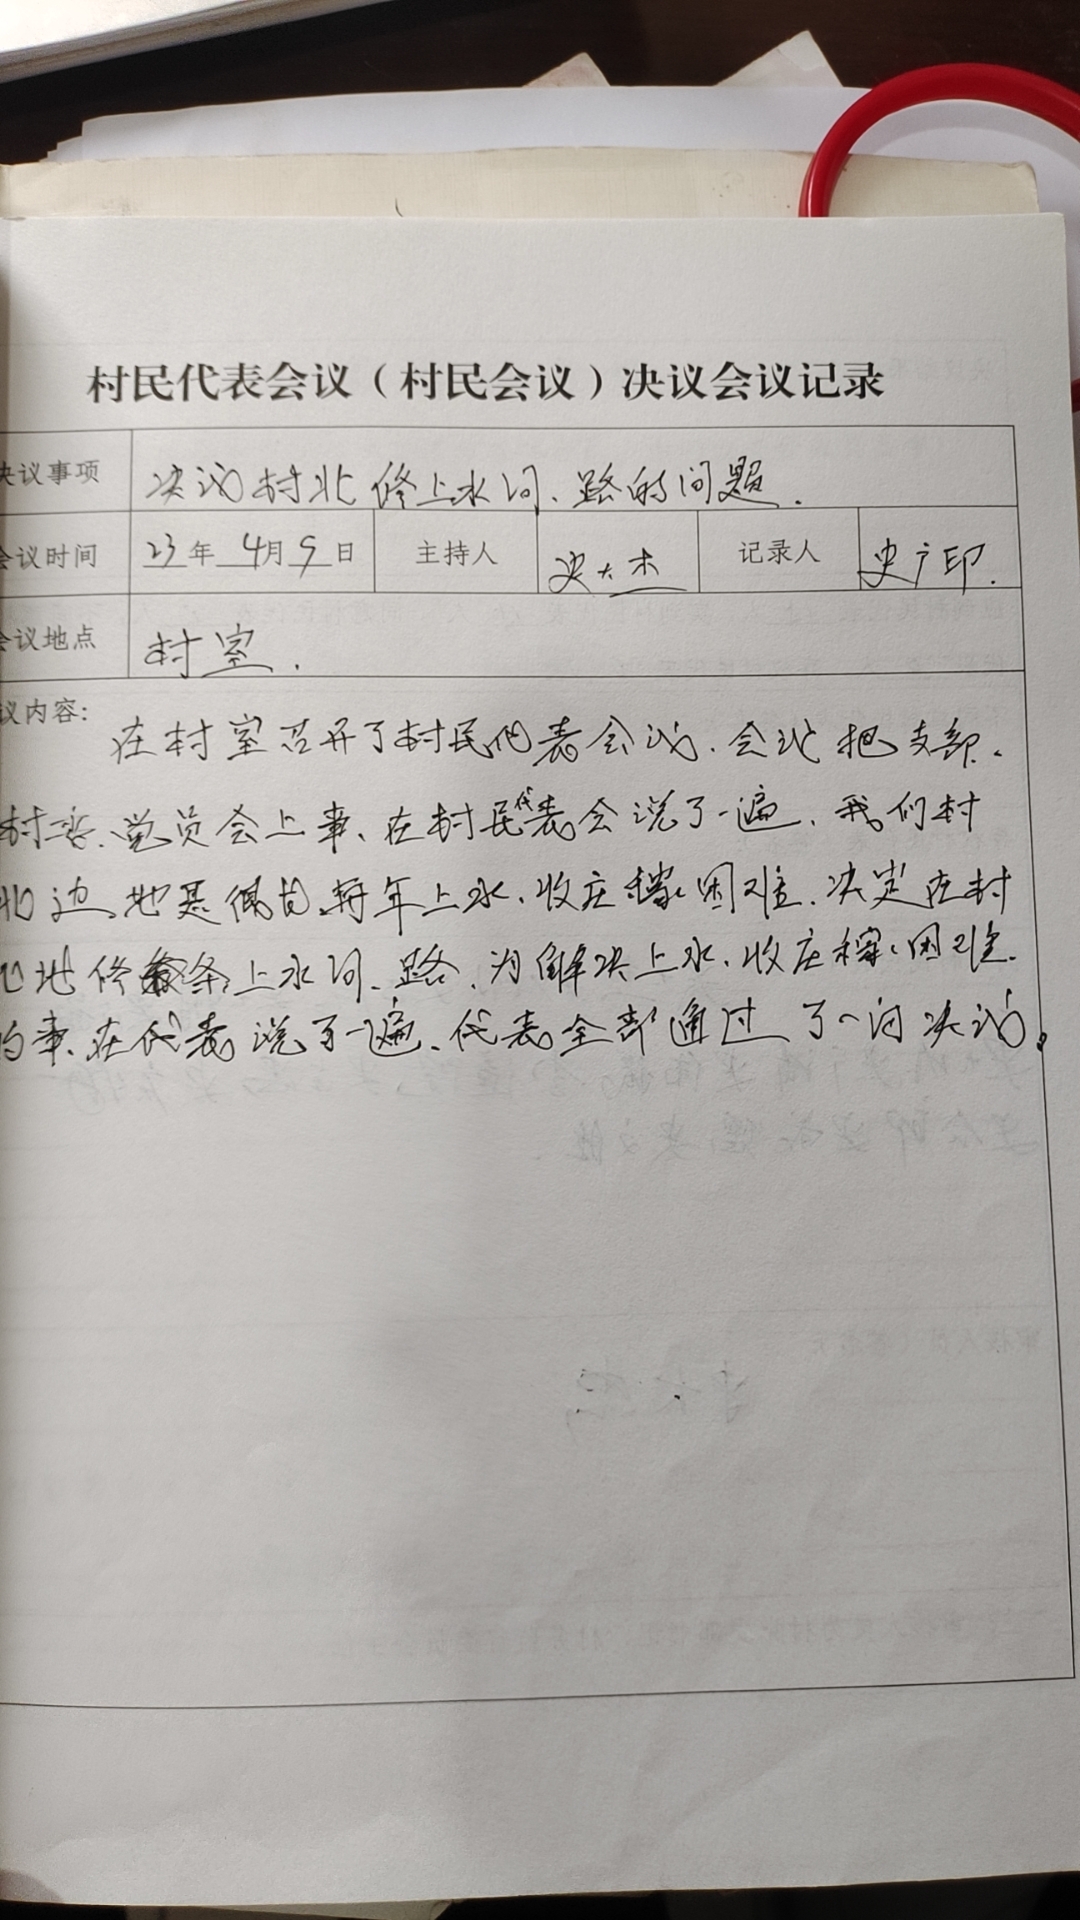 村民代表会议（村民会议）决议会议记录
决议事项 决议村北修上水问、路的问题.
会议时间 23年 4月 9日 主持人 史大木 记录人 史广印.
会议地点 村室.
议内容:
在村室召开了村民代表会议.会议把支部.
村委.党员会上事、在村民代表会说了一遍、我们村
北边、地是偏的、每年上水、收庄稼困难.决定在村
北地修条上水问、路、为解决上水、收庄稼、困难.
的事、在代表说了一遍、代表全部通过了一问决议。